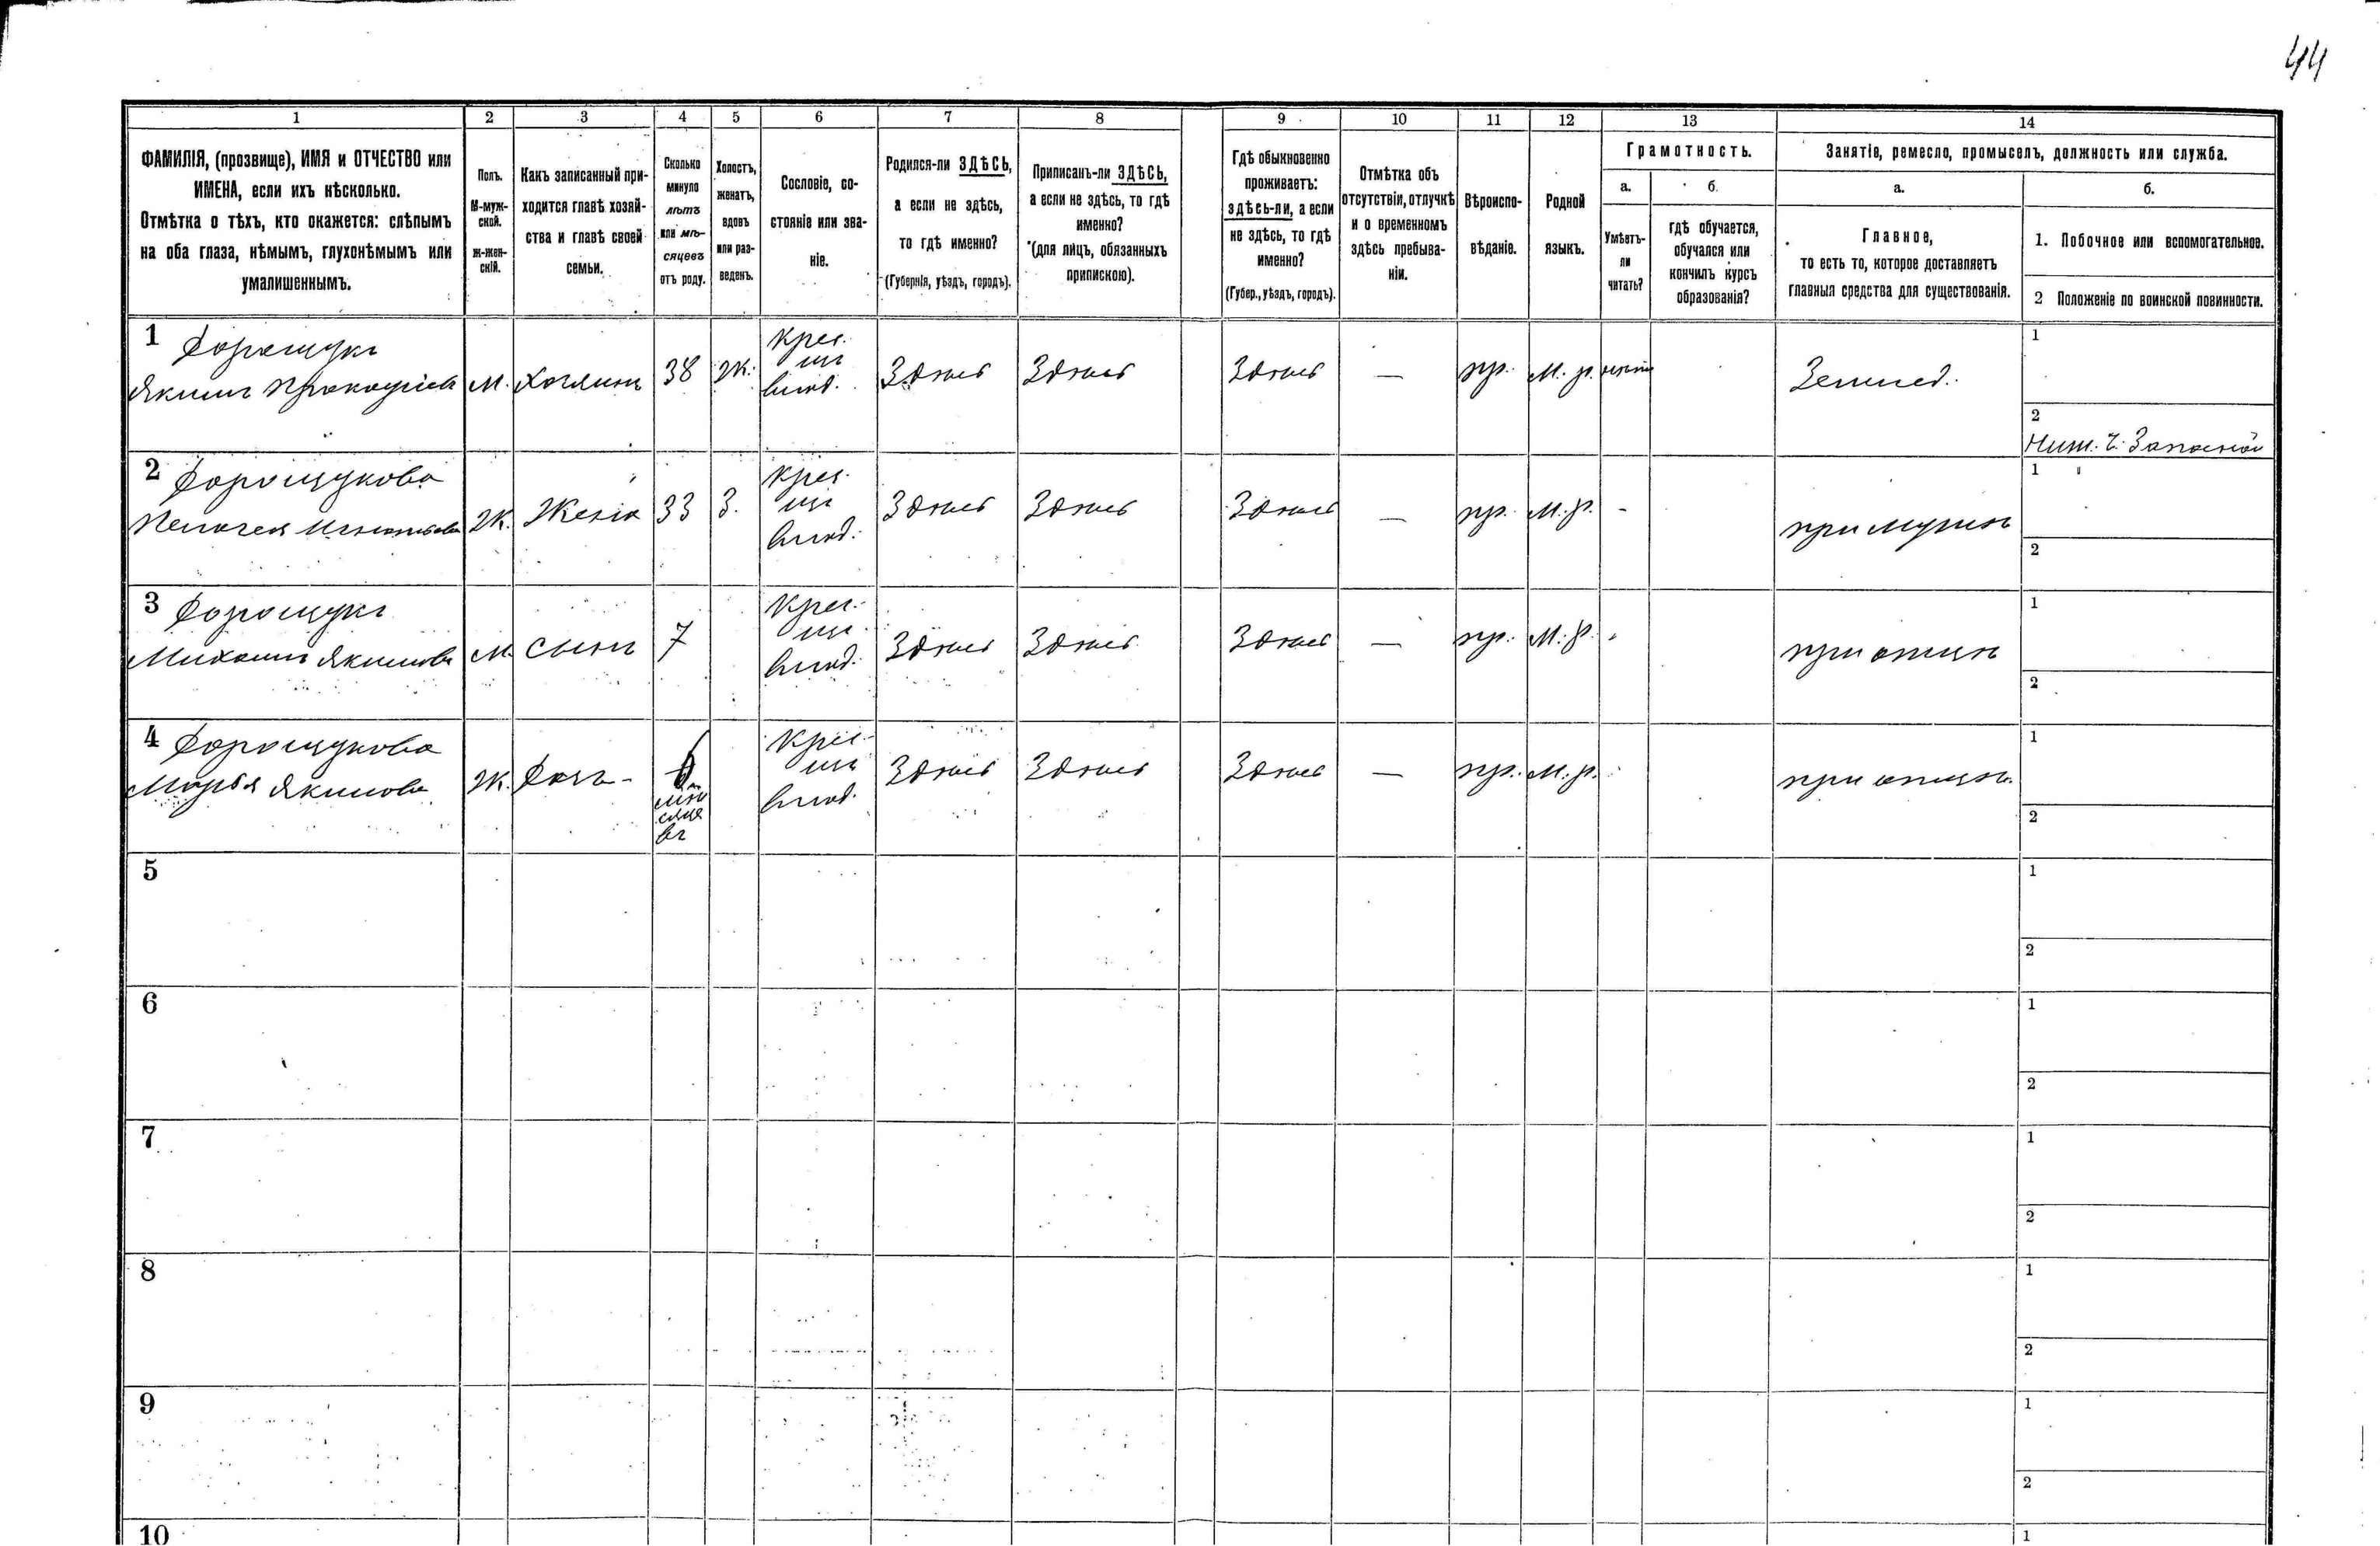 44
1
2
3
4
5
6
7
8
9
10
11
12
13
14
ФАМИЛІЯ, (прозвище), ИМЯ и ОТЧЕСТВО или
ИМЕНА, если ихъ нѣсколько.
Отмѣтка о тѣхъ, кто окажется: слѣпымъ
на оба глаза, нѣмымъ, глухонѣмымъ или
умалишеннымъ.
Полъ.
М-муж-
ской.
ж-жен-
скій.
Какъ записанный при-
ходится главѣ хозяй-
ства и главѣ своей
семьи.
Сколько
минуло
лѣтъ
или мѣ-
сяцевъ
отъ роду.
Холостъ,
женатъ,
вдовъ
или раз-
веденъ.
Сословіе, со-
стояніе или зва-
ніе.
Родился-ли ЗДѢСЬ,
а если не здѣсь,
то гдѣ именно?
(Губернія, уѣздъ, городъ).
Приписанъ-ли ЗДѢСЬ,
а если не здѣсь, то гдѣ
именно?
(для лицъ, обязанныхъ
припискою).
Гдѣ обыкновенно
проживаетъ:
здѣсь-ли, а если
не здѣсь, то гдѣ
именно?
(Губер., уѣздъ, городъ).
Отмѣтка объ
отсутствіи, отлучкѣ
и о временномъ
здѣсь пребыва-
ніи.
Вѣроиспо-
вѣданіе.
Родной
языкъ.
Грамотность.
а.
Умѣетъ-
ли
читать?
б.
гдѣ обучается,
обучался или
кончилъ курсъ
образованія?
Занятіе, ремесло, промыселъ, должность или служба.
а.
Главное,
то есть то, которое доставляетъ
главныя средства для существованія.
б.
1. Побочное или вспомогательное.
2 Положеніе по воинской повинности.
1 Дорощукъ
Якимъ Прокофіевъ
М.
Хозяинъ
38
Ж.
Крес.
изъ
влад.
Здѣсь
Здѣсь
Здѣсь
—
пр.
М. р.
Землед.
1
2
Ниж. ч. Запасной
2 Дорощукова
Пелагея Игнатьева
Ж.
Жена
33
З.
Крес.
изъ
влад.
Здѣсь
Здѣсь
Здѣсь
—
пр.
М. р.
-
при мужѣ
1
2
3 Дорощукъ
Михаилъ Якимовъ
М.
сынъ
7
Крес.
изъ
влад.
Здѣсь
Здѣсь
Здѣсь
—
пр.
М. р.
при отцѣ
1
2
4 Дорощукова
Марья Якимова
Ж.
Доч-
6
мѣ
сяце
въ
Крес.
изъ
влад.
Здѣсь
Здѣсь
Здѣсь
—
пр.
М. р.
при отцѣ.
1
2
5
1
2
6
1
2
7
1
2
8
1
2
9
1
2
10
1